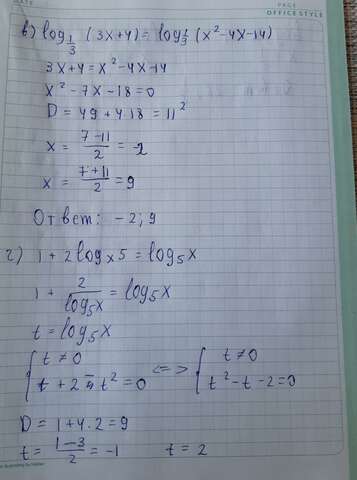 DATE
PAGE
OFFICE STYLE
в) log_{1/3} (3x+4) = log_{1/3} (x²-4x-14)
3x+4 = x²-4x-14
x²-7x-18=0
D = 49 + 4·18 = 11²
x = (7-11)/2 = -2
x = (7+11)/2 = 9
Ответ: -2; 9
г) 1 + 2 log_x 5 = log_5 x
1 + 2/(log_5 x) = log_5 x
t = log_5 x
{ t ≠ 0 <=> { t ≠ 0
t + 2 - t² = 0 t² - t - 2 = 0
D = 1 + 4·2 = 9
t = (1-3)/2 = -1 t = 2